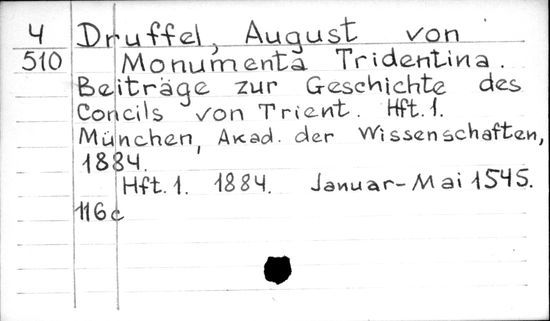 4 Druffel, August von
510 Monumenta Tridentina.
Beiträge zur Geschichte des
Concils von Trient. Hft. 1.
München, Akad. der Wissenschaften,
1884.
Hft. 1. 1884. Januar-Mai 1545.
116c